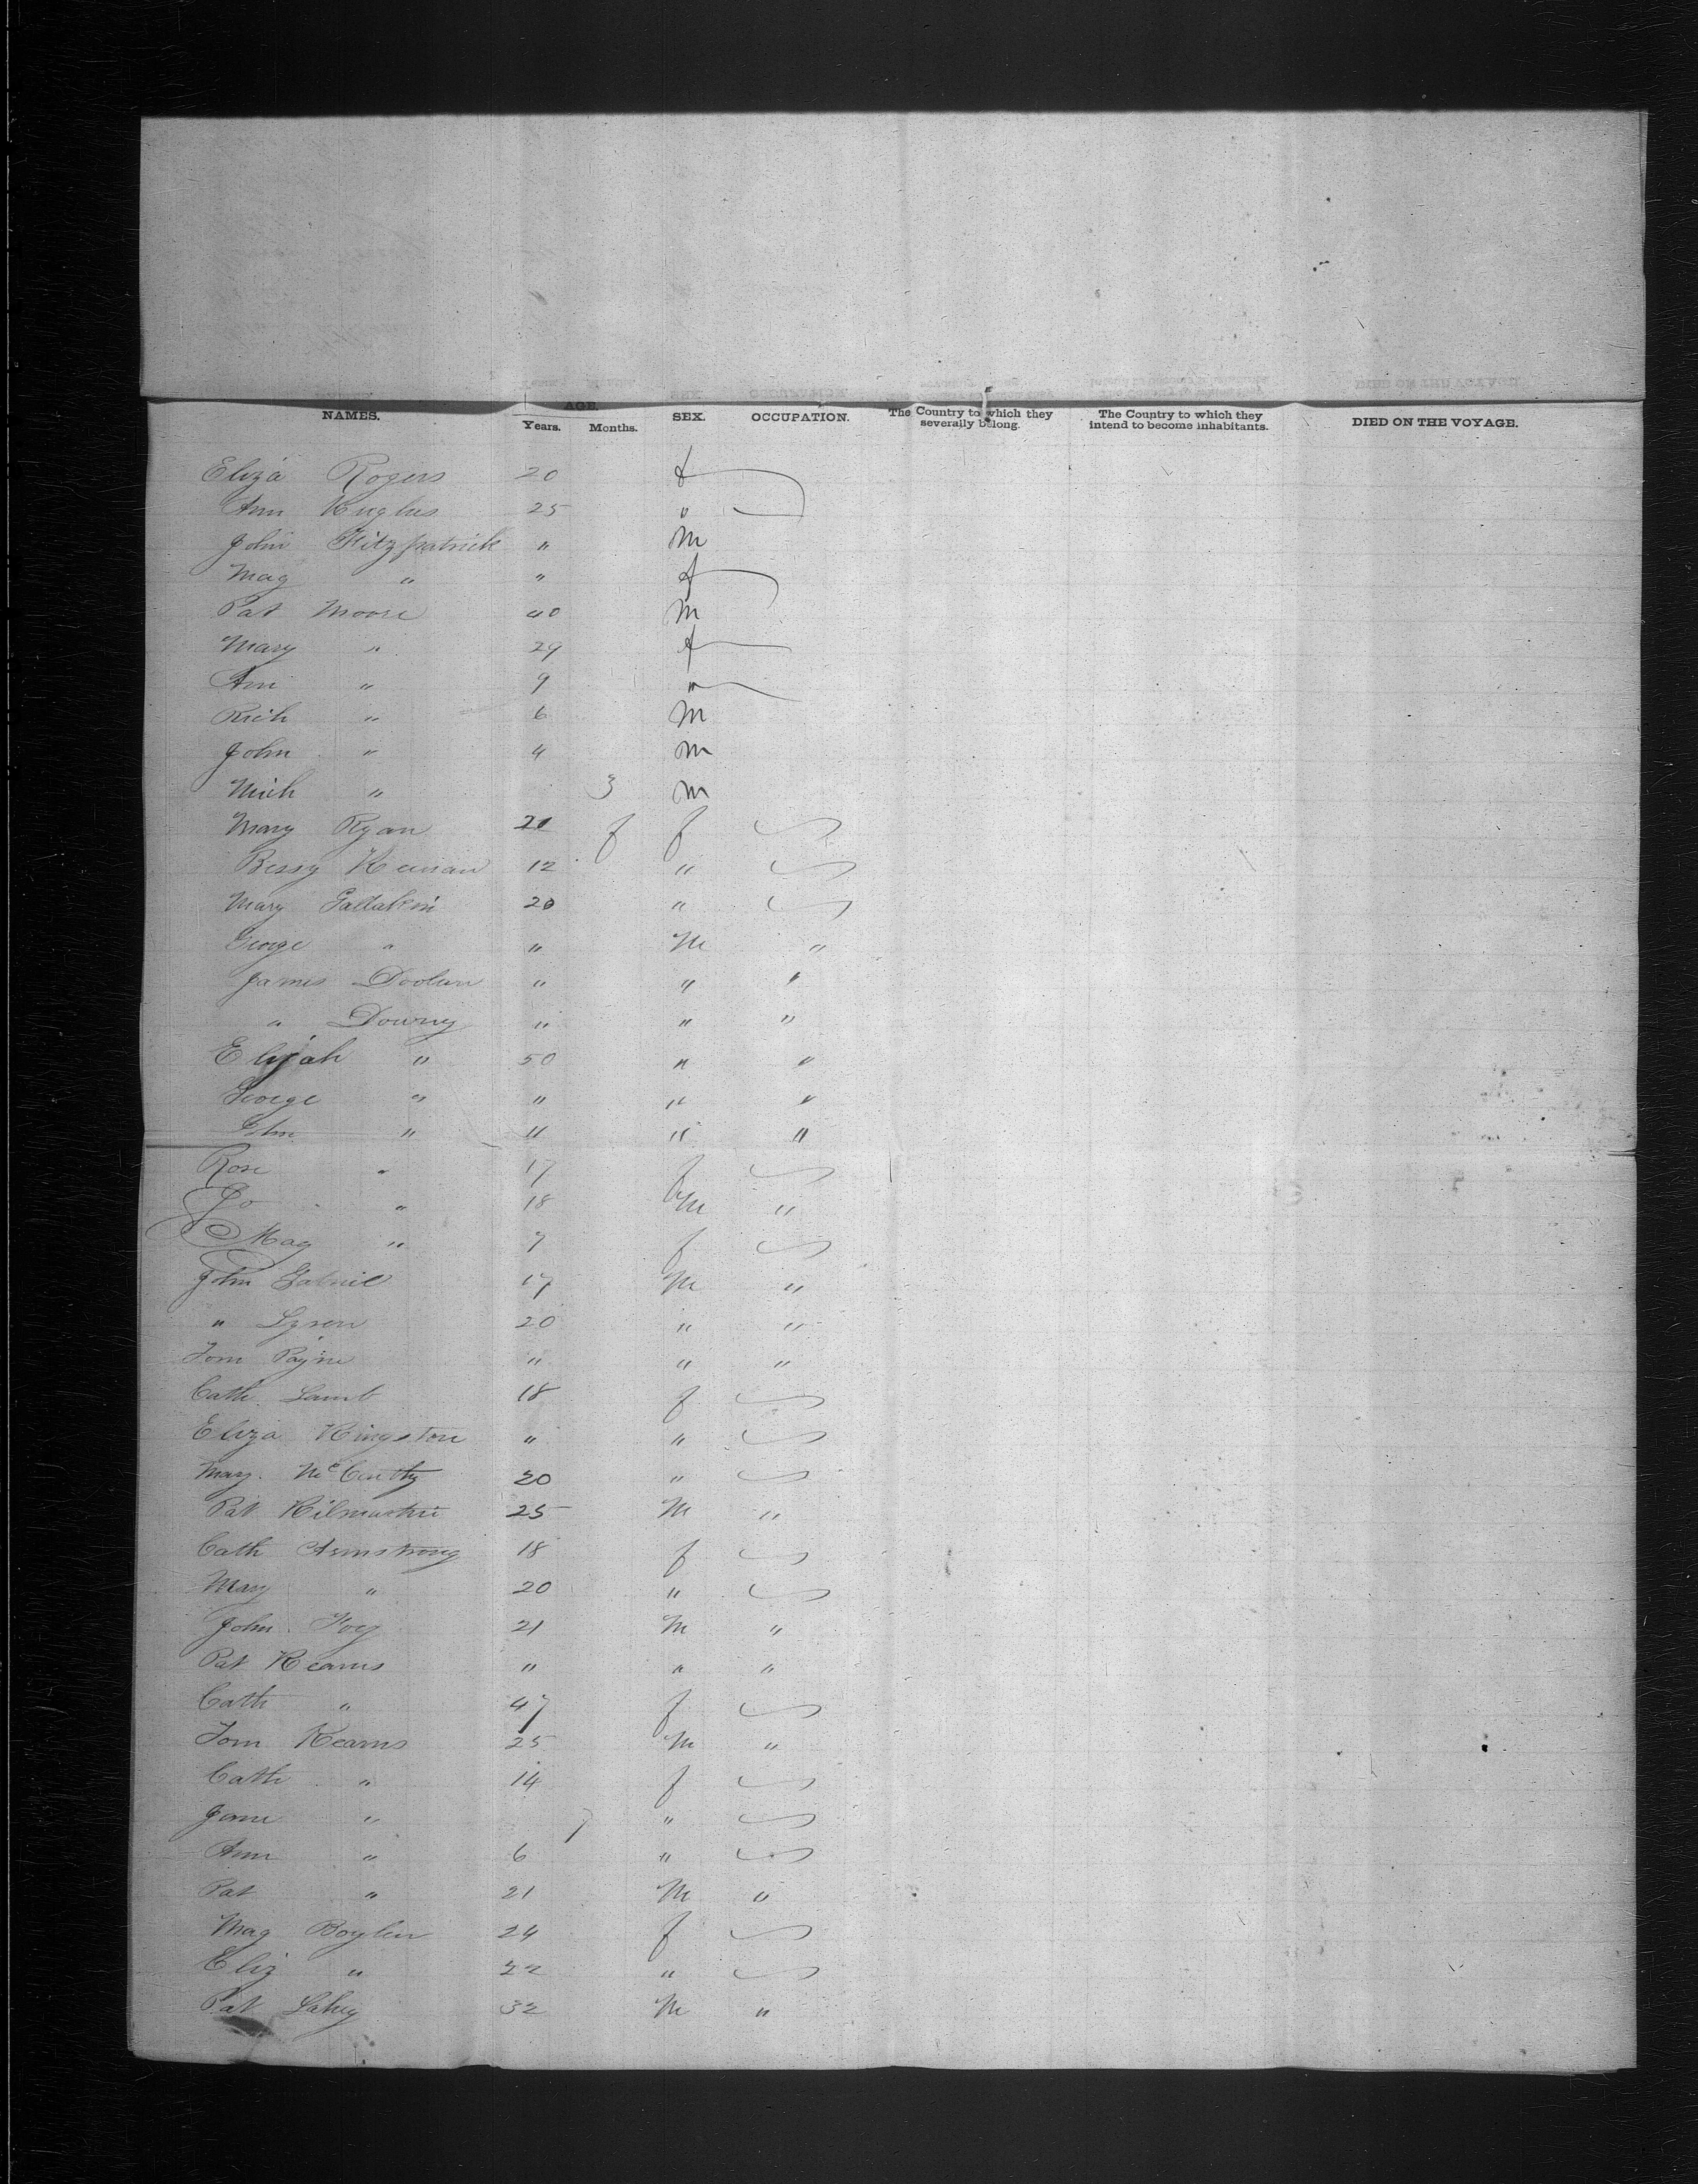 NAMES. AGE. Years. Months. SEX. OCCUPATION. The Country to which they severally belong. The Country to which they intend to become inhabitants. DIED ON THE VOYAGE.
Eliza Rogers 20 f
Ann Hughes 25 "
John Fitzpatrick " M
Mag " " f
Pat Moore 40 M
Mary " 29 f
Ann " 9 "
Rich " 6 M
John " 4 M
Mich " 3 M
Mary Ryan 21 f f
Bessy Keenan 12 "
Mary 20 "
George " " M "
James Doolan " " "
" Downy " " "
Elijah " 50 " "
George " " " "
" " " "
Rose " 17 f
Jo " 18 M "
Mag " 7 f
John Gabriel 17 M "
" 20 " "
Tom Payne " " "
Cath Lamb 18 f
Eliza Kingston " "
Mary McCarthy 20 "
Pat 25 M "
Cath Armstrong 18 f
Mary " 20 "
John Foy 21 M "
Pat Kearns " " "
Cath " 47 f
Tom Kearns 25 M "
Cath " 14 f
Jane " 7 "
Ann " 6 "
Pat " 21 M "
Mag Boylen 24 f
Eliz " 22 "
Pat Lahey 32 M "